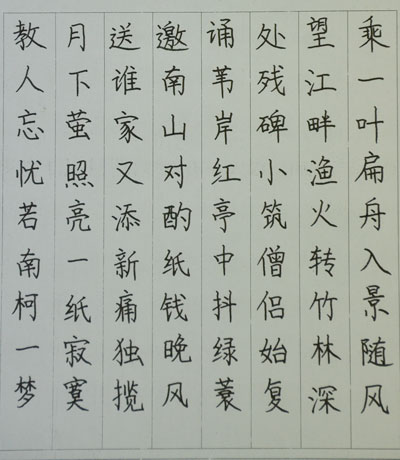 乘一叶扁舟入景随风
望江畔渔火转竹林深
处残碑小筑僧侣始复
诵苇岸红亭中抖绿蓑
邀南山对酌纸钱晚风
送谁家又添新痛独揽
月下萤照亮一纸寂寞
教人忘忧若南柯一梦